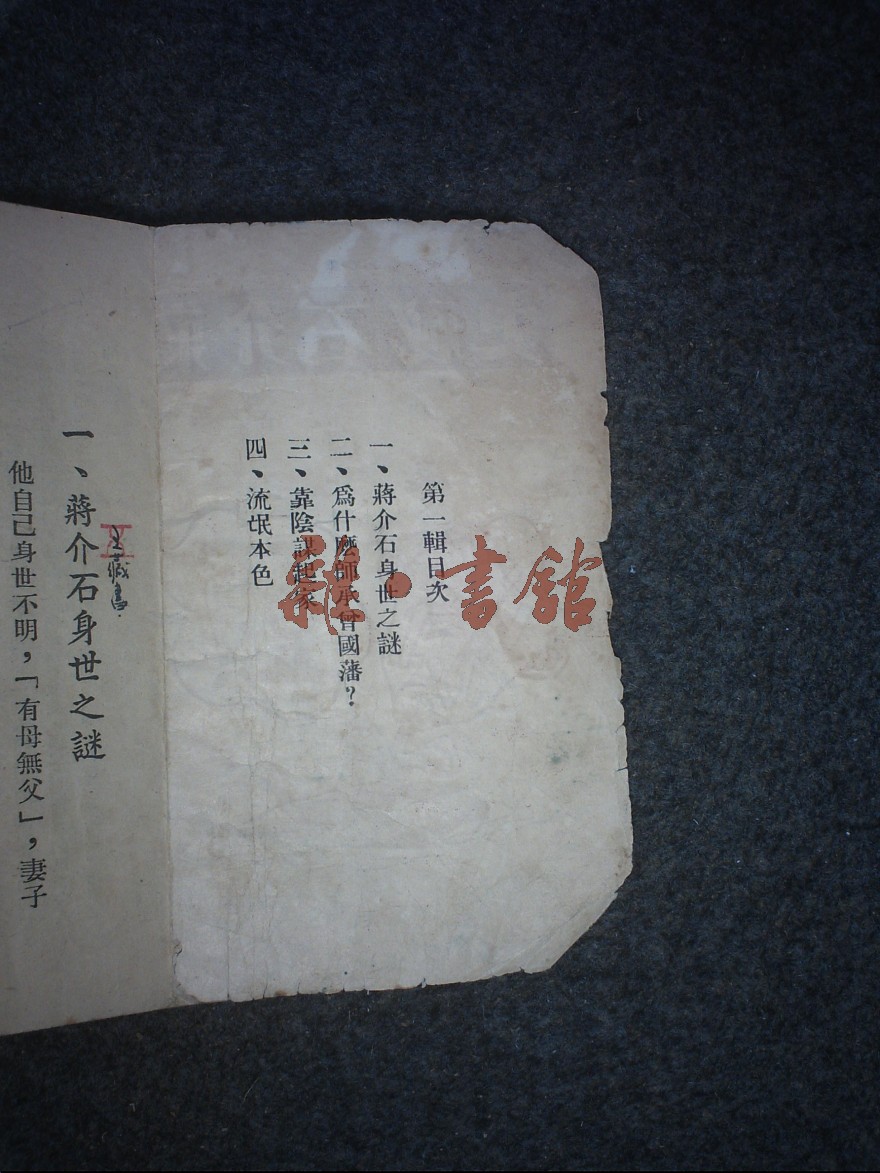 第一輯目次
一、蔣介石身世之謎
二、爲什麼師承曾國藩？
三、靠陰謀起家
四、流氓本色
一、蔣介石身世之謎
他自己身世不明，「有母無父」，妻子
雜·書館